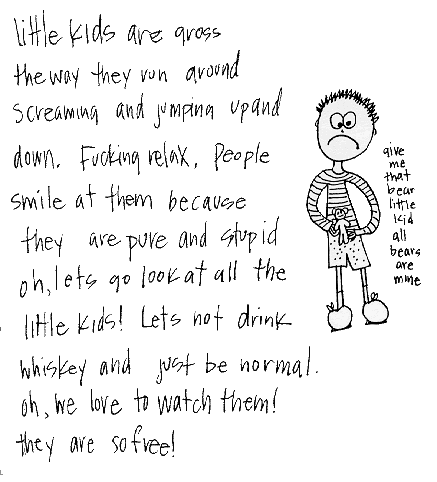 little kids are gross
the way they run around
screaming and jumping up and
down. Fucking relax. People
smile at them because
they are pure and stupid
oh, lets go look at all the
little kids! Lets not drink
whiskey and just be normal.
oh, we love to watch them!
they are so free!
give
me
that
bear
little
kid
all
bears
are
mine